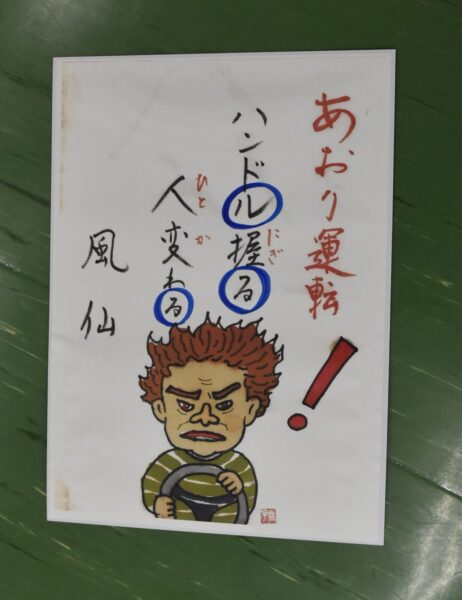 あおり運転!
ハンドル握る
にぎ
人変わる
ひと か
風仙